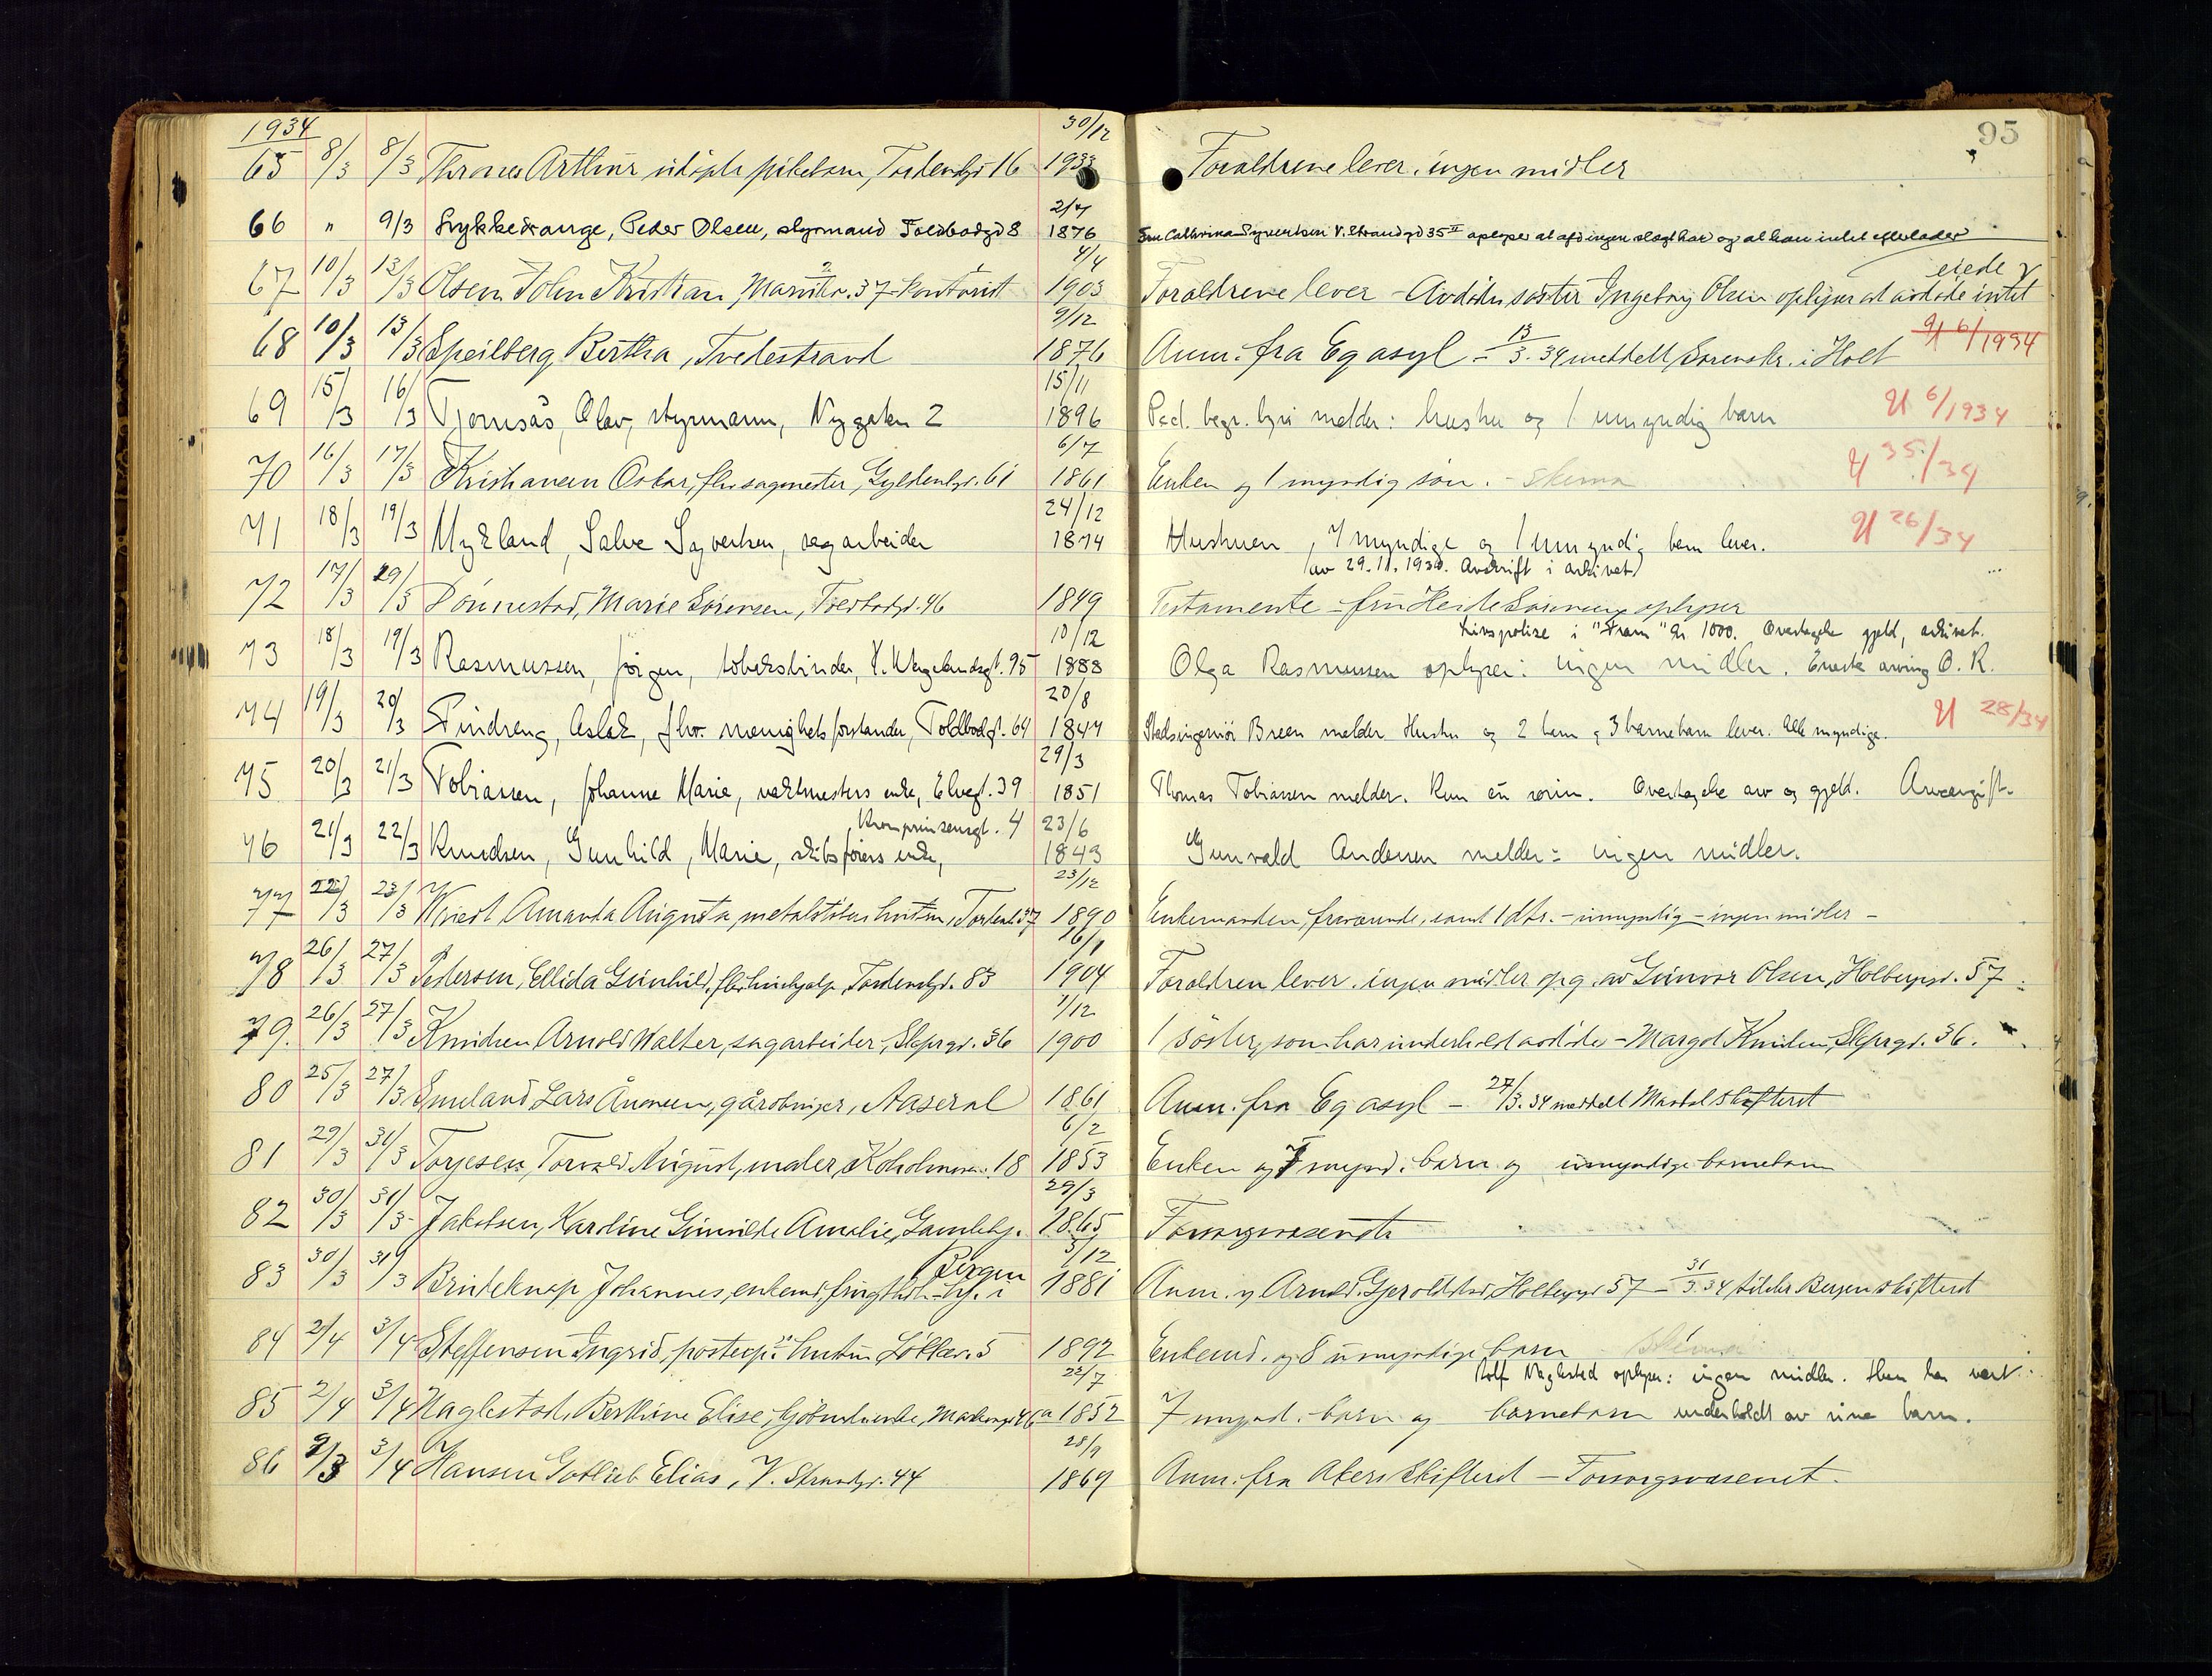 1934
95
65 8/3 8/3 Thrones Arthur udöpte pikebarn, Tordenskjgt 16 30/12 1933 Foraldrene lever. ingen midler
66 " 9/3 Peder Olsen, styrmand Toldbodgd 8 2/7 1876 Fru Cathrina Syvertsen V. Strandgd 35 II oplyser at afd ingen slægt har og at han intet efterlader
67 10/3 13/3 Olsen John Kristian, 37 kontorist 4/4 1903 Foraldrene lever - Avdødes søster Ingeborg Olsen oplyser at avdøde intet eiede
68 10/3 13/3 Speilberg Bertha, Tvedestrand 9/12 1876 Anm. fra Eg asyl - 13/3.34 meddelt Sorenskr. i Holt U 6/1934
69 15/3 16/3 Tjomsås, Olav, styrmann, Nygaten 2 15/11 1896 Ped. begr. byrå melder: hustru og 1 umyndig barn U 6/1934
70 16/3 17/3 Kristiansen Oskar, fhv. sagmester, Gyldenlgt. 61 6/7 1861 Enken og 1 myndig sön. - Skema U 35/34
71 18/3 19/3 Mykland, Salve Syvertsen, sagarbeider 24/12 1874 Hustruen, 7 myndige og 1 umyndig barn lever. U 26/34
(av 29.11.1930. Avskrift i arkivet)
72 17/3 19/3 Dønnestad, Marie Sørensen, Toldbodgd. 46 1849 Testamente - fru Heide Sørensen oplyser
Livspolise i "Fram" kr. 1000. Overtagelse gjeld, arkivet.
73 18/3 19/3 Rasmussen, Jörgen, tobaksbinder, V. Wergelandsgt. 95 10/12 1888 Olga Rasmussen oplyser: ingen midler. Eneste arving O. R.
74 19/3 20/3 Findreng, Aslak, fhv. menighetsforstander, Toldbodgt. 64 20/8 1847 Stadsingeniör Breen melder Hustru og 2 barn og 3 barnebarn lever. Alle myndige. U 28/34
75 20/3 21/3 Tobiassen, Johanne Marie, vaktmesters enke, Elvegt. 39 29/3 1851 Thomas Tobiassen melder. Kun en sønn. Overtagelse arv og gjeld. Arveavgift.
76 21/3 22/3 Knudsen, Gunhild, Marie, skibsförers enke, Kronprinsensgt. 4 23/6 1843 Gunvald Andersen melder: ingen midler.
77 22/3 23/3 Amanda Augusta, metalstöpers hustru, Tordenskj 37 23/12 1890 Enkemanden, fraværende, samt 1 dtr. - umyndig - ingen midler -
78 26/3 27/3 Pedersen, Ellida Gunhild, fhv. hushjelp, Tordenskjgt. 83 16/1 1904 Foraldren lever. ingen midler opg. av Gunvor Olsen, Holbergsgt. 57
79. 26/3 27/3 Knudsen Arnold Walter, sagarbeider, Skprgt. 36 1/12 1900 1 søster, som har underholdt avdöde - Margot Knudsen, Skprgt. 36.
80 25/3 27/3 Smeland Lars Ånonsen, gårdbruger, Aaseral 1861 Anm. fra Eg asyl - 27/3.34 meddelt Mandal Skifteret
81 29/3 31/3 Torjesen, Torvald August, maler, Koholmen 18 6/2 1853 Enken og 7 mynd. barn og umyndige barnebarn
82 30/3 31/3 Jakobsen, Karoline Gunvilde Amelie, Gamlehj. 29/3 1865 Forsorgsvæsendt
83 30/3 31/3 Brudeknap Johannes, enkemd, i Bergen 3/12 1881 Anm. av Arnold Gjeroldstad, Holbergsgt 57 - 31/3.34 tilskr. Bergen skifteret
84 2/4 3/4 Steffensen Ingrid, postexp. hustru Løkkev. 5 1892 Enkemd. og 8 umyndige barn Skema
85 2/4 3/4 Naglestad, Berthine Elise, Markensgt 46a 22/7 1852 7 mynd. barn og barnebarn Rolf Naglestad oplyser: ingen midler. Hun har vært underholdt av sine barn.
86 2/3 3/4 Hansen Gotlieb Elias, V. Strandgt. 44 28/9 1869 Anm. fra Akers Skifteret - Forsorgsvæsenet.